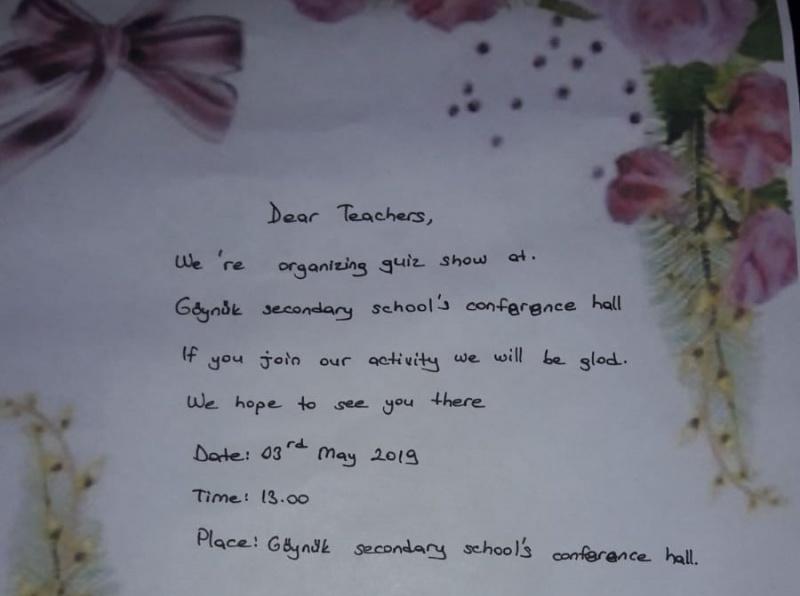 Dear Teachers,
We're organizing quiz show at.
Göynük secondary school's conference hall
If you join our activity we will be glad.
We hope to see you there
Date: 03rd May 2019
Time: 13.00
Place: Göynük secondary school's conference hall.